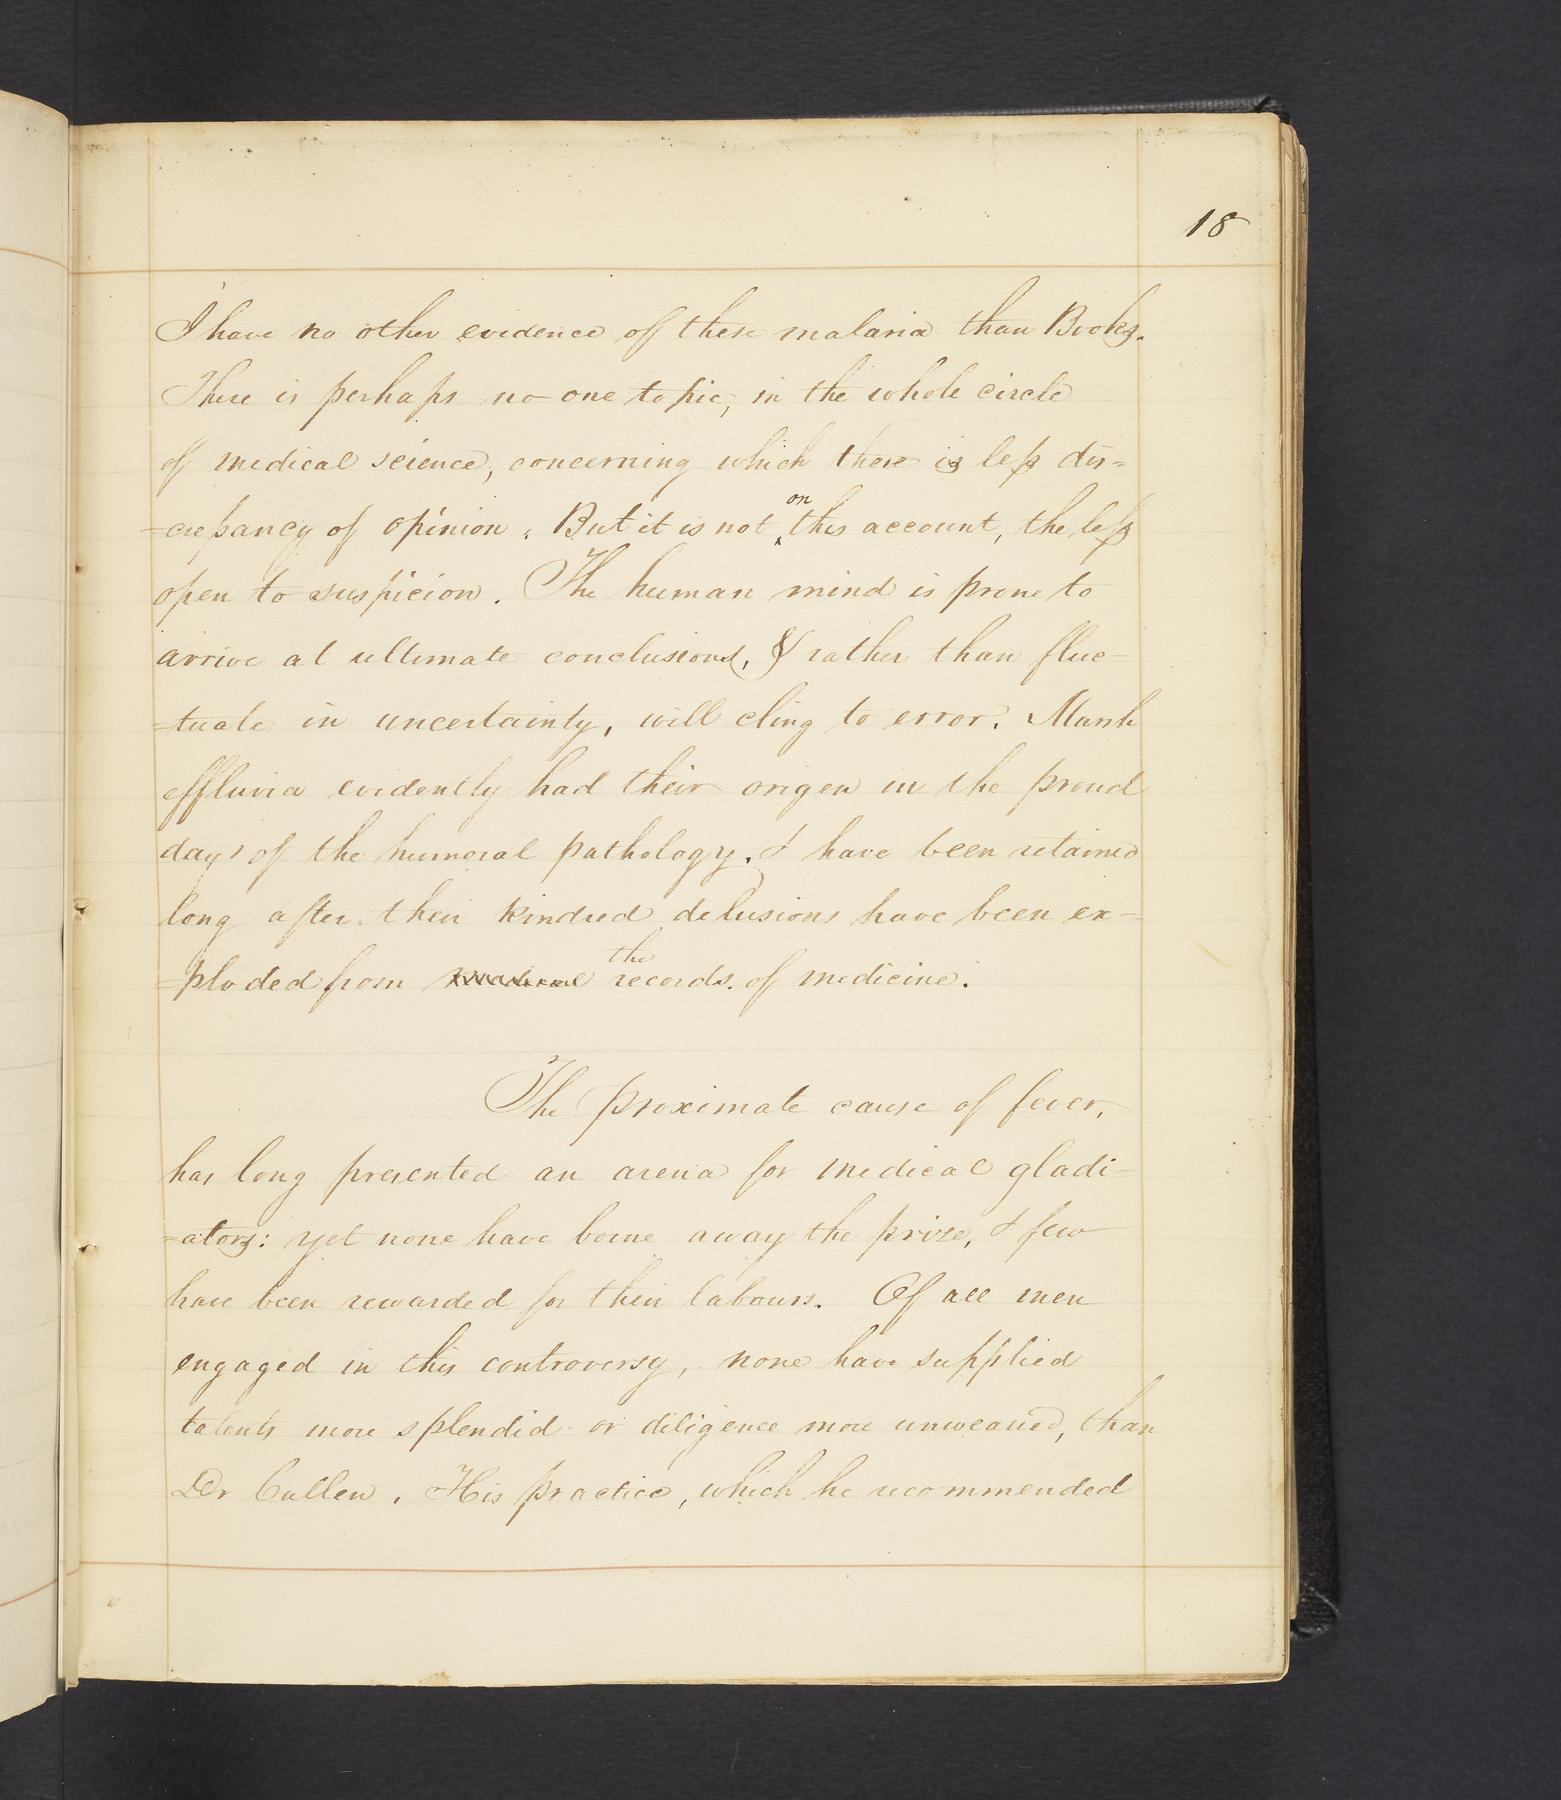 18
I have no other evidence of these malaria than Books.
There is perhaps no one topic, in the whole circle
of medical science, concerning which there is less dis=
=crepancy of opinion. But it is not on this account, the less
open to suspicion. The human mind is prone to
arrive at ultimate conclusions, & rather than fluc=
=tuate in uncertainty, will cling to error. Marsh
effluvia evidently had their origen in the proud
days of the humoral pathology, & have been retained
long after their kindred delusions have been ex=
=ploded from the records of medicine.
The proximate cause of fever,
has long presented an arena for medical gladi=
=ators: yet none have borne away the prize, & few
have been rewarded for their labours. Of all men
engaged in this controversy, none have supplied
talents more splendid or diligence more unwearied, than
Dr Cullen. His practice, which he recommended